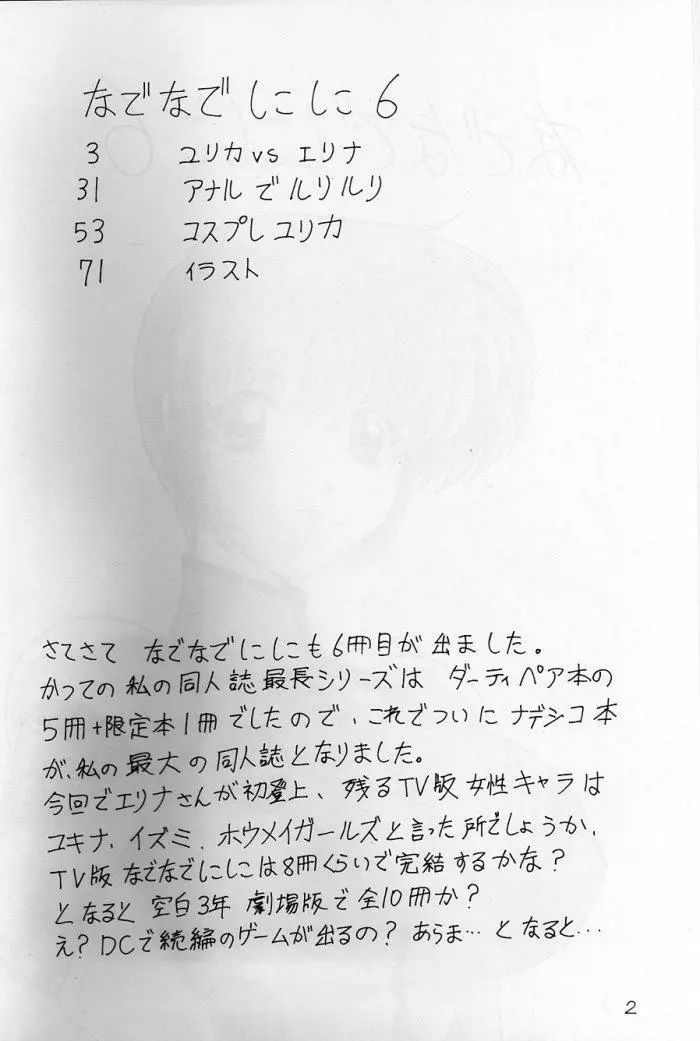 なでなでしこしこ 6
3 ユリカ vs エリナ
31 アナルでルリルリ
53 コスプレユリカ
71 イラスト
さてさて なでなでにしこも 6冊目が出ました。
かっての私の同人誌最長シリーズは ダーティペア本の
5冊+限定本1冊でしたので、これでついに ナデシコ本
が、私の最大の同人誌となりました。
今回でエリナさんが初登上、残るTV版女性キャラは
ユキナ、イズミ、ホウメイガールズと言った所でしょうか、
TV版 なでなでにしこは8冊くらいで完結するかな?
となると 空白3年 劇場版で全10冊か?
え? DCで続編のゲームが出るの? あらま… となると…
2